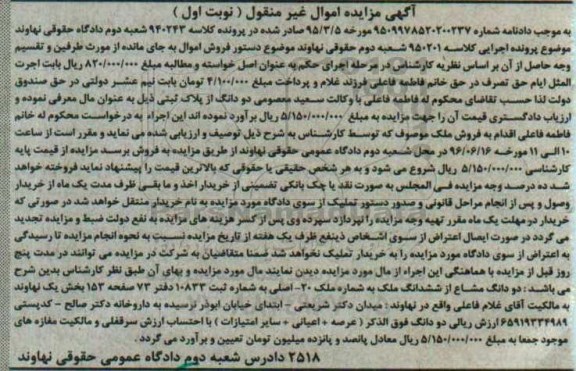 آگهی مزایده اموال غیر منقول ( نوبت اول )
به موجب دادنامه شماره ۹۵۰۹۹۷۸۵۲۰۲۰۰۲۳۷ مورخه ۹۵/۳/۵ صادر شده در پرونده کلاسه ۹۴۰۲۴۳ شعبه دوم دادگاه حقوقی نهاوند
موضوع پرونده اجرایی کلاسه ۹۵۰۲۰۱ شعبه دوم حقوقی نهاوند موضوع دستور فروش اموال به جای مانده از مورث طرفین و تقسیم
وجه حاصل از آن بر اساس نظریه کارشناس در مرحله اجرای حکم به عنوان اصل خواسته و مطالبه مبلغ ۸۲۰/۰۰۰/۰۰۰ ریال بابت اجرت
المثل ایام حق تصرف در حق خانم فاطمه فاعلی فرزند غلام و پرداخت مبلغ ۴/۱۰۰/۰۰۰ بابت نیم عشر دولتی در حق صندوق
دولت لذا حسب تقاضای محکوم له فاطمه فاعلی با وکالت سعید معصومی دو دانگ از پلاک ثبتی ذیل به عنوان مال معرفی نموده و
ارزیاب دادگستری قیمت آن را جهت مزایده به مبلغ ۵/۱۵۰/۰۰۰/۰۰۰ ریال برآورد نموده اند این اجراء به درخواست محکوم له خانم
فاطمه فاعلی اقدام به فروش ملک موصوف که توسط کارشناس به شرح ذیل توصیف و ارزیابی شده می نماید و مقرر است از ساعت
۱۰ الی ۱۱ مورخه ۹۶/۰۶/۱۶ در محل شعبه دوم دادگاه عمومی حقوقی نهاوند از طریق مزایده به فروش برسد مزایده از قیمت پایه
کارشناسی ۵/۱۵۰/۰۰۰/۰۰۰ ریال شروع می شود و به هر شخص حقیقی یا حقوقی که بالاترین قیمت را پیشنهاد نماید فروخته خواهد
شد ده درصد وجه مزایده فی المجلس به صورت نقد یا چک بانکی تضمینی از خریدار اخذ و ما بقی ظرف مدت یک ماه از خریدار
وصول و پس از انجام مراحل قانونی و صدور دستور تملیک از سوی دادگاه مورد مزایده به نام خریدار منتقل خواهد شد در صورتی که
خریدار در مهلت یک ماه مقرر تهیه وجه مزایده را نپردازد سپرده وی پس از کسر هزینه های مزایده به نفع دولت ضبط و مزایده تجدید
می گردد در صورت ایصال اعتراض از سوی اشخاص ذینفع ظرف یک هفته از تاریخ مزایده نسبت به نحوه انجام مزایده تا رسیدگی
به اعتراض از سوی دادگاه مورد مزایده را به خریدار تملیک نخواهد شد ضمنا متقاضیان به شرکت در مزایده می توانند در مدت پنج
روز قبل از مزایده با هماهنگی این اجراء از مال مورد مزایده دیدن نمایند مال مورد مزایده و بهای آن طبق نظر کارشناس بدین شرح
می باشد : دو دانگ مشاع از ششدانگ ملک به شماره ملک ۲۰- اصلی به شماره ثبت ۱۰۸۳۳ دفتر ۷۳ صفحه ۱۵۳ بخش یک نهاوند
به مالکیت آقای غلام فاعلی واقع در نهاوند : میدان دکتر شریعتی - ابتدای خیابان ابوذر نرسیده به داروخانه دکتر صالح - کدپستی
۶۵۹۱۹۳۳۴۹۸۹ ارزش ریالی دو دانگ فوق الذکر ( عرصه + اعیانی + سایر امتیازات ) با احتساب ارزش سرقفلی و مالکیت مغازه های
موجود جمعا به مبلغ ۵/۱۵۰/۰۰۰/۰۰۰ ریال معادل پانصد و پانزده میلیون تومان تعیین و برآورد می گردد .
۲۵۱۸ دادرس شعبه دوم دادگاه عمومی حقوقی نهاوند